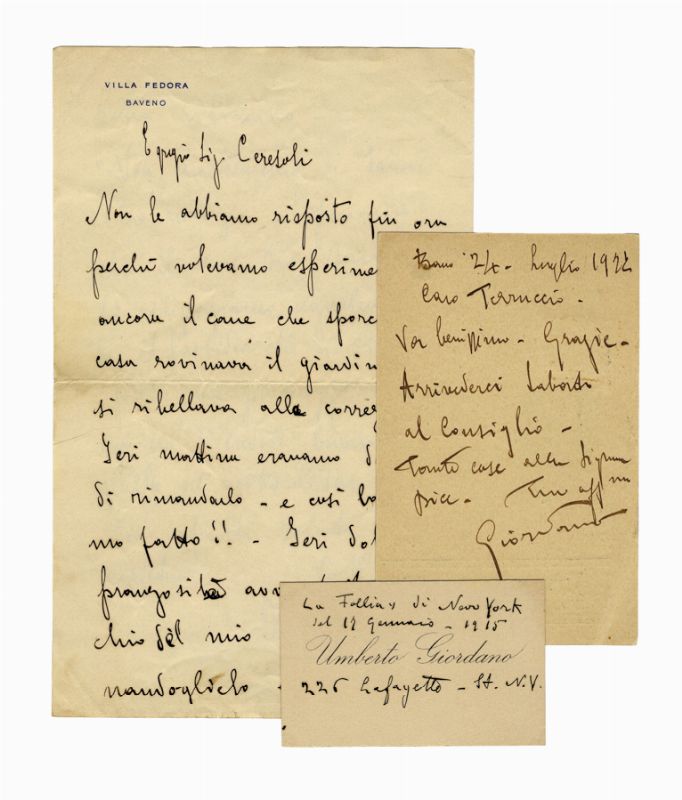 VILLA FEDORA
BAVENO
Egregio Sig Ceresoli
Non le abbiamo risposto fin ora
perchè volevamo esperime
ancora il cane che sporc
casa rovinava il giardin
si ribellava alle correg
Ieri mattina eravamo d
di rimandarlo - e così
mo fatto!! - Ieri do
pranzo si
chio del mio
mandoglielo
Luglio 192
Caro Ferruccio -
Va benissimo - Grazie -
Arrivederci Sabato
al Consiglio -
Tante cose alla Signora
Tuo aff mo
Giordano
La Follia di Novo York
del 17 Gennaio - 1915
Umberto Giordano
226 Lafayette - St. N.Y.